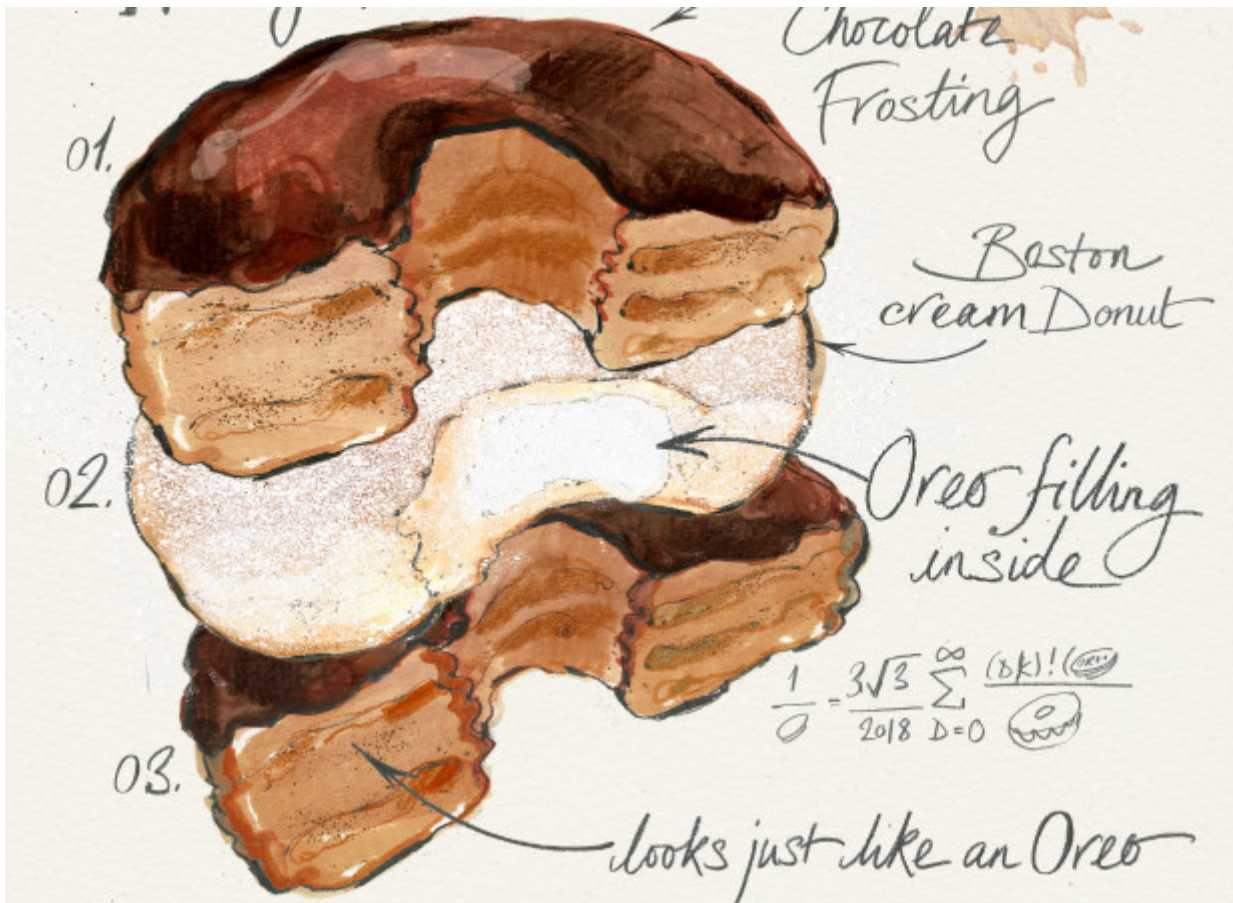 Chocolate
Frosting
01.
Boston
cream Donut
02.
Oreo filling
inside
1 = 3√3 ∞ (DK)!(
2018 D=0
03.
looks just like an Oreo